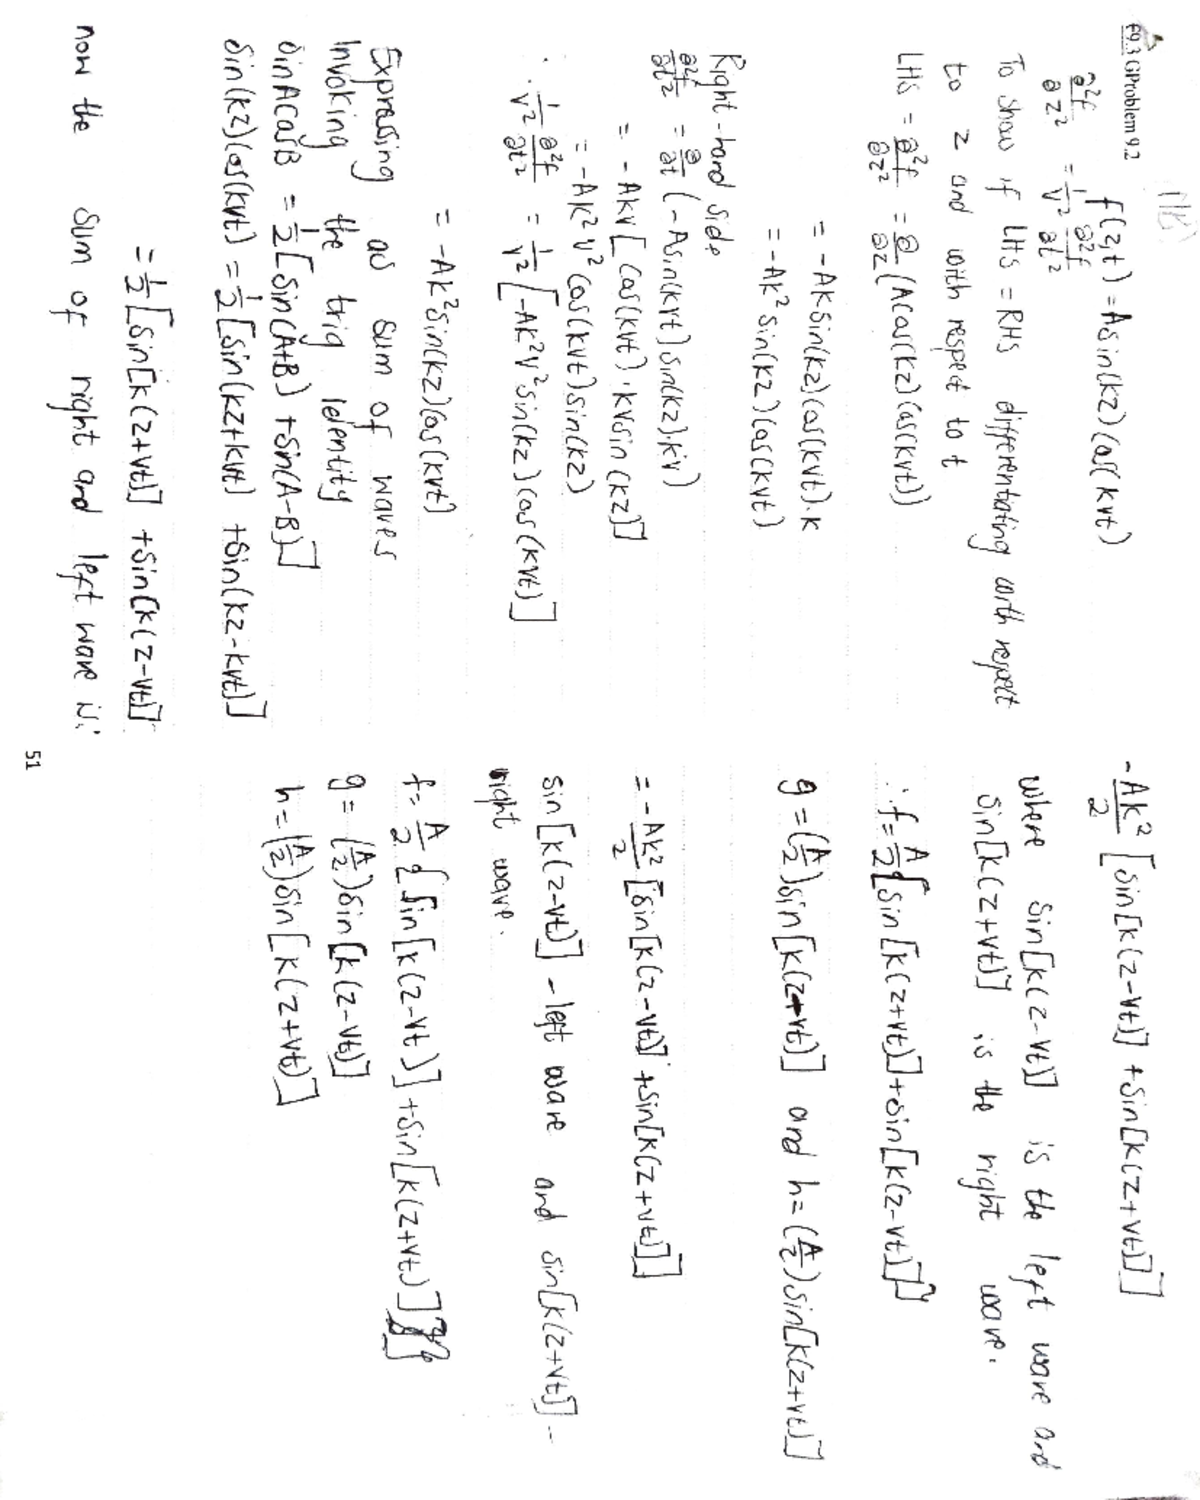 E9.3 GProblem 9.2
f(z,t) = A sin(kz) cos(kvt)
∂²f/∂z² = 1/v² ∂²f/∂t²
To show if LHS = RHS differentiating with respect
to z and with respect to t
LHS = ∂²f/∂z² = ∂/∂z (A cos(kz) cos(kvt))
= -Ak sin(kz) cos(kvt)·k
= -Ak² sin(kz) cos(kvt)
Right-hand side
∂²f/∂t² = ∂/∂t (-A sin(kvt) sin(kz)·kv)
= -Akv[cos(kvt)·kv sin(kz)]
= -Ak²v² cos(kvt) sin(kz)
∴ 1/v² ∂²f/∂t² = 1/v² [-Ak²v² sin(kz) cos(kvt)]
= -Ak² sin(kz) cos(kvt)
Expressing as sum of waves
Invoking the trig identity
sinAcosB = 1/2 [sin(A+B) + sin(A-B)]
sin(kz) cos(kvt) = 1/2 [sin(kz+kvt) + sin(kz-kvt)]
= 1/2 [sin[k(z+vt)] + sin[k(z-vt)]
now the sum of right and left wave is:
-Ak²/2 [sin[k(z-vt)] + sin[k(z+vt)]]
where sin[k(z-vt)] is the left wave and
sin[k(z+vt)] is the right wave.
∴ f = A/2 {sin[k(z+vt)] + sin[k(z-vt)]}
g = (A/2) sin[k(z+vt)] and h = (A/2) sin[k(z+vt)]
= -Ak²/2 [sin[k(z-vt)] + sin[k(z+vt)]]
sin[k(z-vt)] - left wave and sin[k(z+vt)] --
right wave.
f = A/2 {sin[k(z-vt)] + sin[k(z+vt)]}
g = (A/2) sin[k(z-vt)]
h = (A/2) sin[k(z+vt)]
51